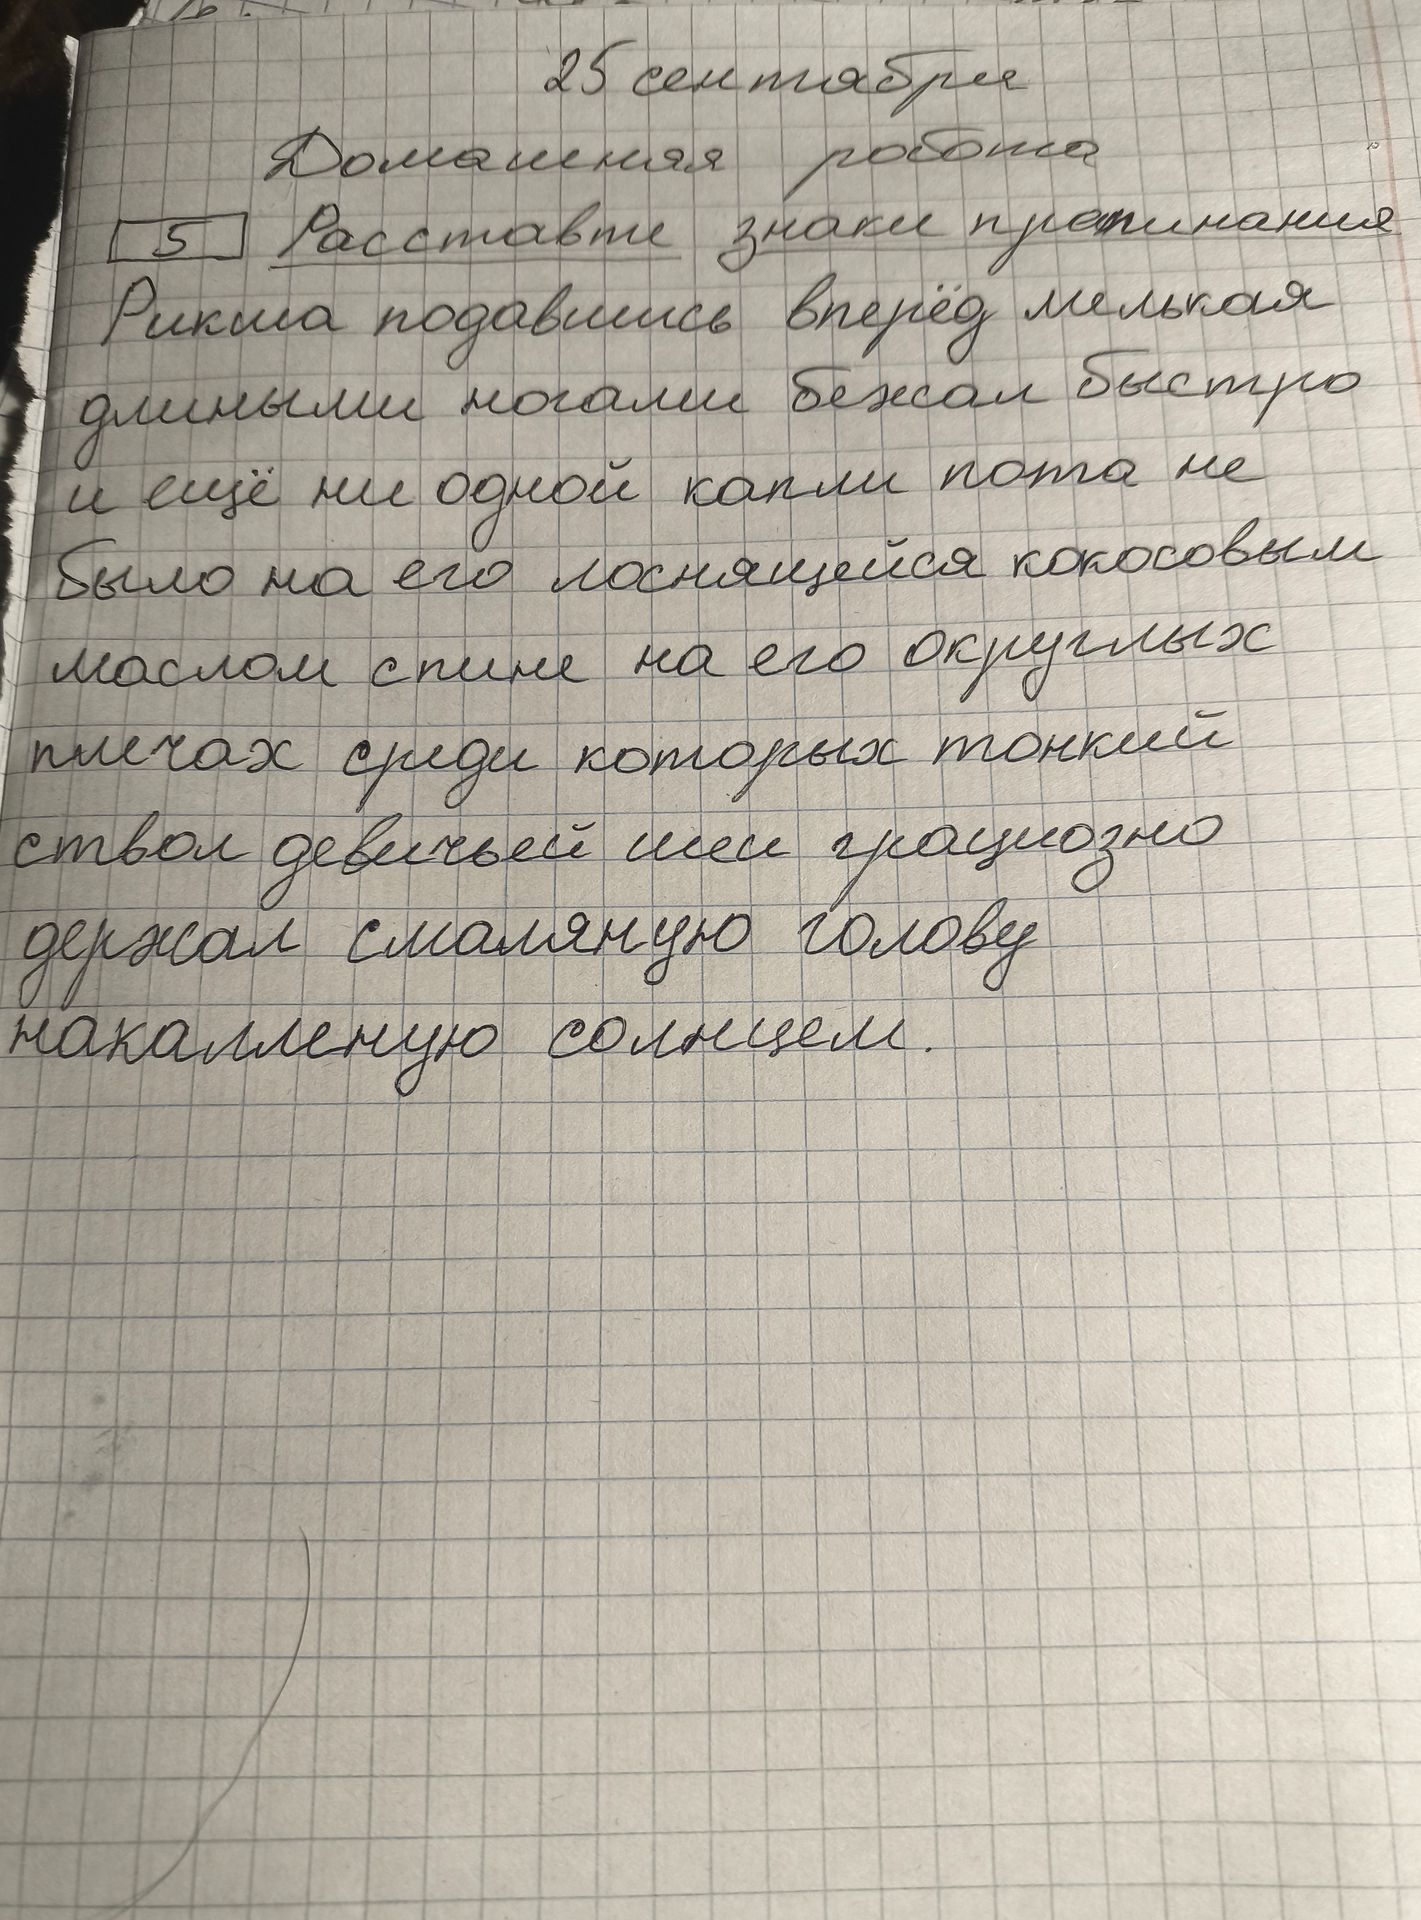 25 сентября
Домашняя работа
5 Расставте знаки препинания
Рикша подавшись вперёд мелькая
длиными ногами бежал быстро
и ещё ни одной капли пота не
было на его лоснящейся кокосовым
маслом спине на его округлых
плечах среди которых тонкий
ствол девичьей шеи грациозно
держал смаляную голову
накалленую солнцем.